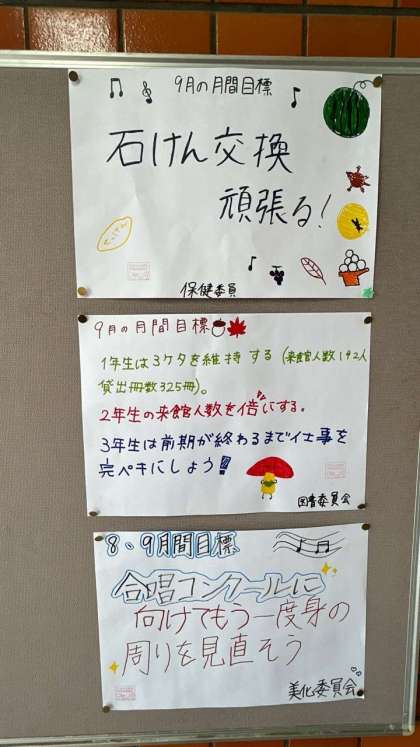 9月の月間目標
石けん交換
頑張る!
保健委員
9月の月間目標
1年生は3ケタを維持する(来館人数192人
貸出冊数325冊)。
2年生の来館人数を倍にする。
3年生は前期が終わるまで仕事を
完ペキにしよう!
図書委員会
8、9月間目標
合唱コンクールに
向けてもう一度身の
周りを見直そう
美化委員会